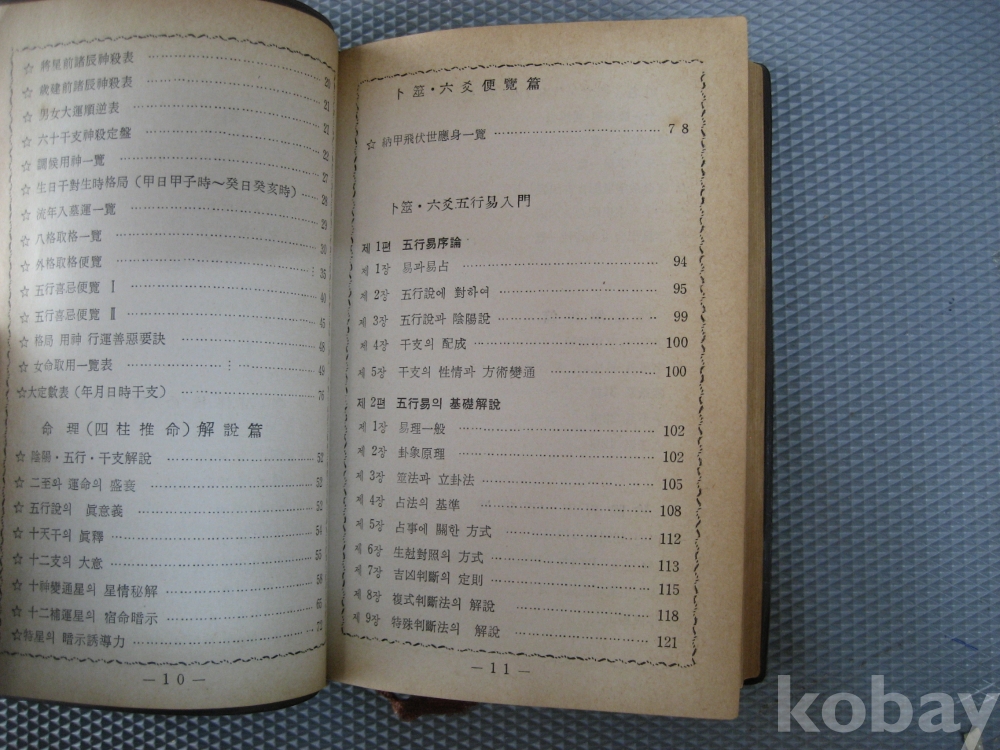 ☆ 將星前諸辰神殺表 20
☆ 歲建前諸辰神殺表 21
☆ 男女大運順逆表 21
☆ 六十干支神殺定盤 22
☆ 調候用神一覽 27
☆ 生日干對生時格局 (甲日甲子時～癸日癸亥時) 28
☆ 流年入墓運一覽 29
☆ 八格取格一覽 30
☆ 外格取格便覽 35
☆ 五行喜忌便覽 Ⅰ 40
☆ 五行喜忌便覽 Ⅱ 45
☆ 格局 用神 行運善惡要訣 48
☆ 女命取用一覽表 49
☆大定數表 (年月日時干支) 76
命 理 (四 柱 推 命) 解 說 篇
☆ 陰陽・五行・干支解說 52
☆ 二至와 運命의 盛衰 52
☆ 五行說의 眞意義 52
☆ 十天干의 眞釋 54
☆ 十二支의 大意 55
☆ 十神變通星의 星情秘解 58
☆ 十二補運星의 宿命暗示 65
☆特星의 暗示誘導力 72
— 1 0 —
卜 筮・六 爻 便 覽 篇
☆ 納甲飛伏世應身一覽 7 8
卜 筮・六爻五行易入門
제 1편 五行易序論
제 1장 易과易占 94
제 2장 五行說에 對하여 95
제 3장 五行說과 陰陽說 99
제 4장 干支의 配成 100
제 5장 干支의 性情과 方術變通 100
제 2편 五行易의 基礎解說
제 1장 易理一般 102
제 2장 卦象原理 102
제 3장 筮法과 立卦法 105
제 4장 占法의 基準 108
제 5장 占事에 關한 方式 112
제 6장 生尅對照의 方式 113
제 7장 吉凶判斷의 定則 115
제 8장 複式判斷法의 解說 118
제 9장 特殊判斷法의 解說 121
— 1 1 —
kobay